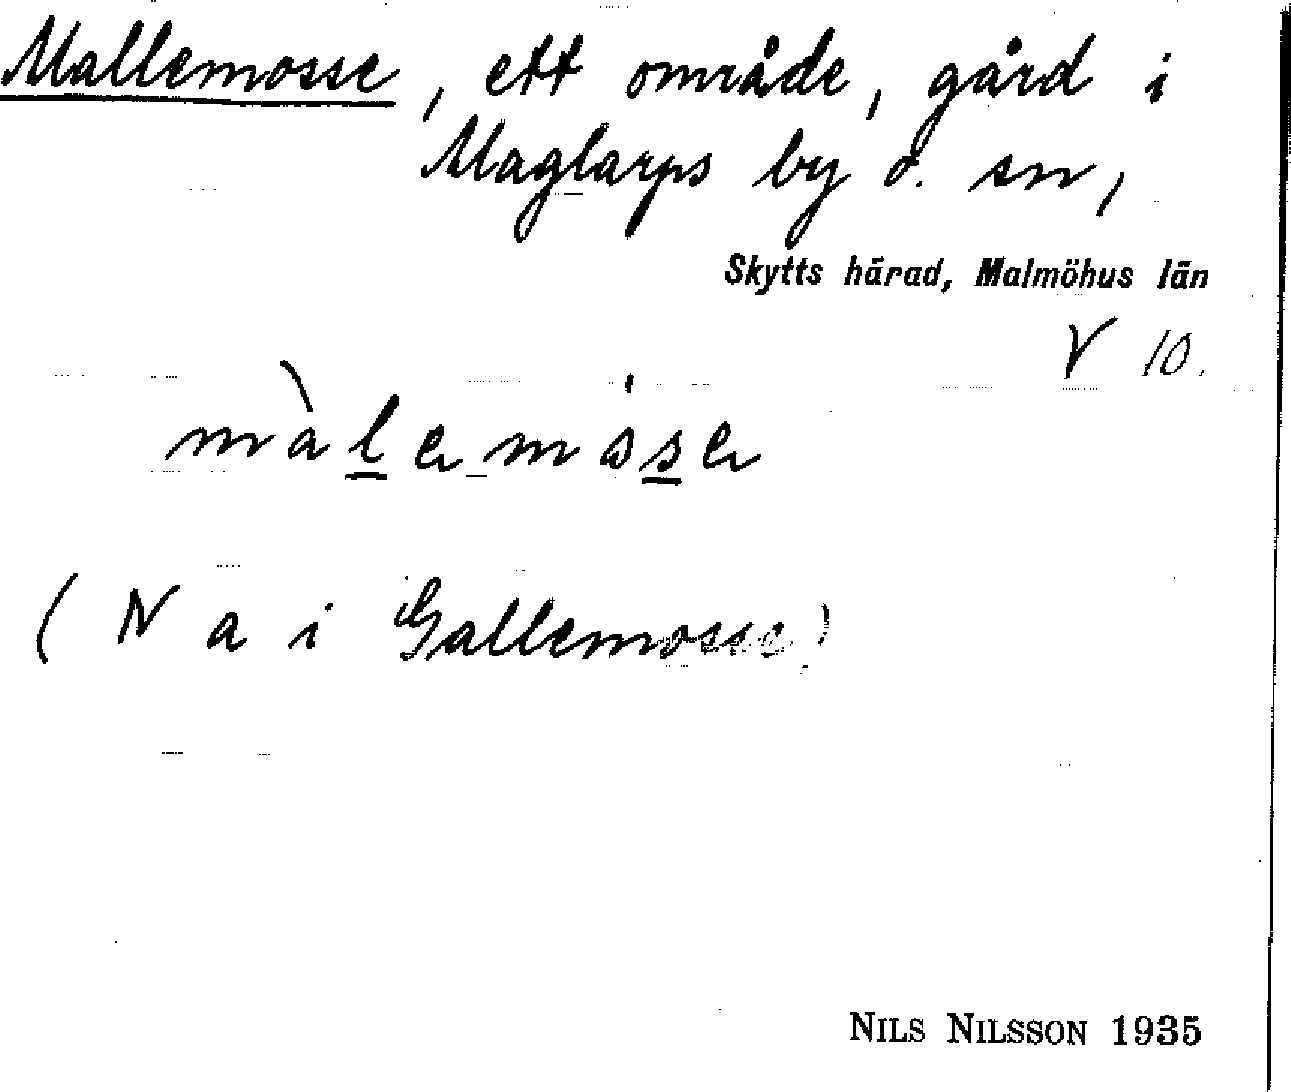 Mallemosse, ett område, gård i
Maglarps by o. sn,
Skytts härad, Malmöhus län
V 10.
màlemåse
(N a i Gallemosse)
NILS NILSSON 1935